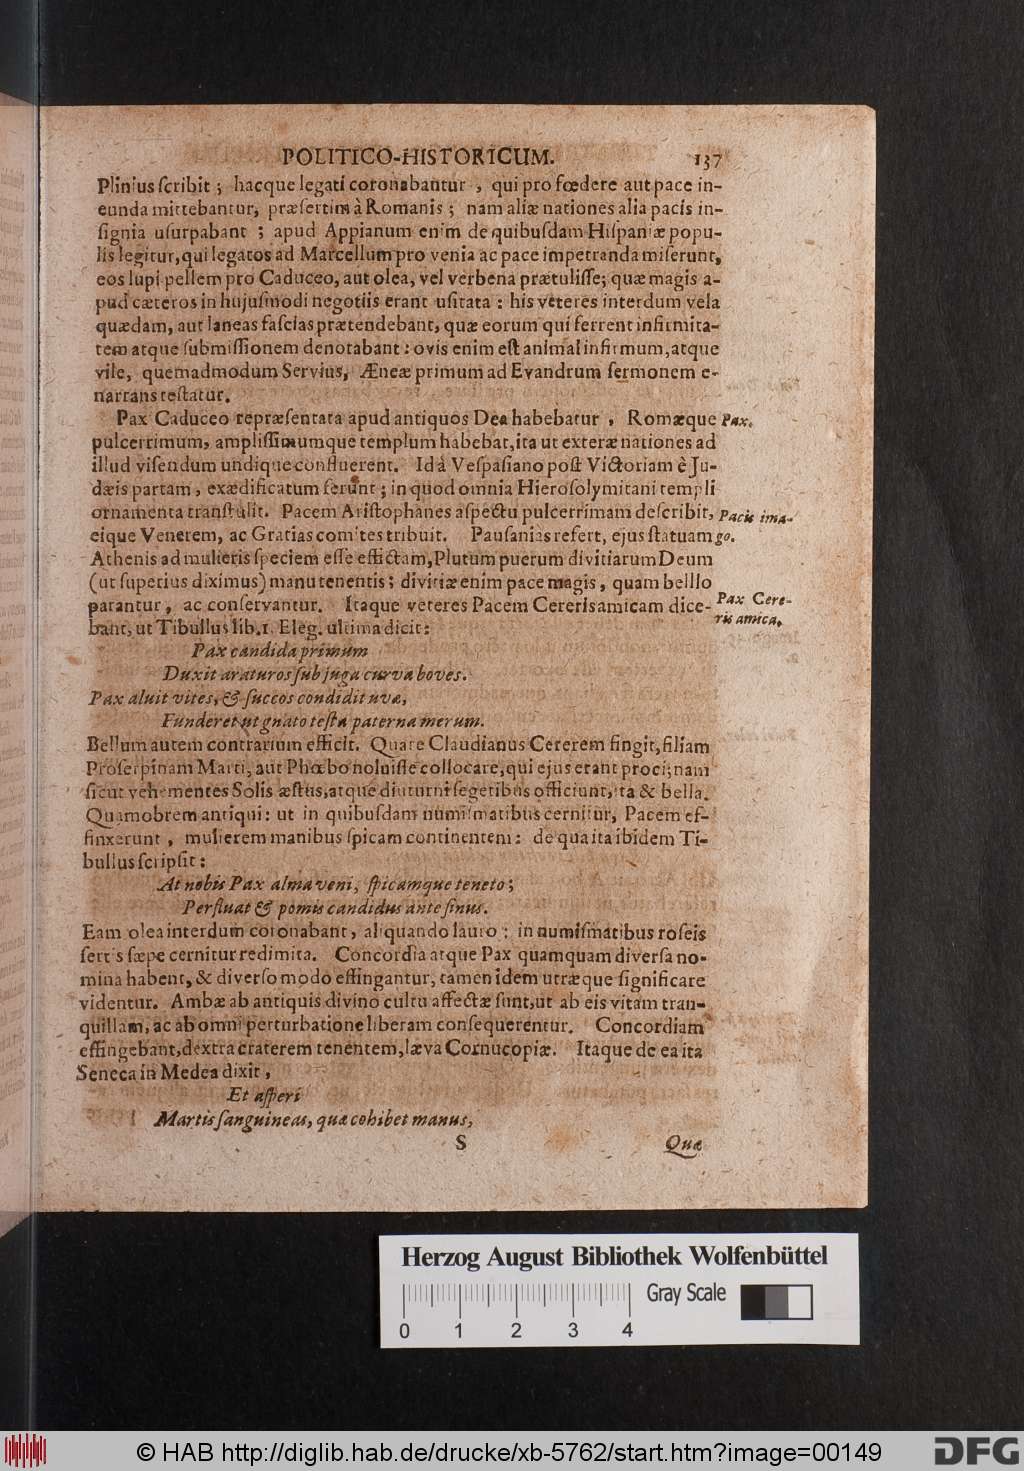 POLITICO-HISTORICUM. 137
Plinius ſcribit; hacque legati coronabantur, qui pro fœdere aut pace in-
eunda mittebantur, præſertim à Romanis; nam aliæ nationes alia pacis in-
ſignia uſurpabant; apud Appianum enim de quibuſdam Hiſpaniæ popu-
lis legitur, qui legatos ad Marcellum pro venia ac pace impetranda miſerunt,
eos lupi pellem pro Caduceo, aut olea, vel verbena prætuliſſe; quæ magis a-
pud cæteros in hujuſmodi negotiis erant uſitata: his veteres interdum vela
quædam, aut laneas faſcias prætendebant, quæ eorum qui ferrent infirmita-
tem atque ſubmiſſionem denotabant: ovis enim eſt animal infirmum, atque
vile, quemadmodum Servius, Æneæ primum ad Evandrum ſermonem e-
narrans teſtatur.
Pax Caduceo repræſentata apud antiquos Dea habebatur, Romæque
Pax.
pulcerrimum, ampliſſimumque templum habebat, ita ut exteræ nationes ad
illud viſendum undique confluerent. Id à Veſpaſiano poſt Victoriam è Ju-
dæis partam, exædificatum ferunt; in quod omnia Hieroſolymitani templi
ornamenta tranſtulit. Pacem Ariſtophanes aſpectu pulcerrimam deſcribit,
Pacis ima-
eique Venerem, ac Gratias comites tribuit. Pauſanias refert, ejus ſtatuam
go.
Athenis ad mulieris ſpeciem eſſe effictam, Plutum puerum divitiarum Deum
(ut ſuperius diximus) manu tenentis; divitiæ enim pace magis, quam belllo
parantur, ac conſervantur. Itaque veteres Pacem Cereris amicam dice-
Pax Cere-
ris amica.
bant, ut Tibullus lib. 1. Eleg. ultima dicit:
Pax candida primum
Duxit araturos ſub juga curva boves.
Pax aluit vites, & ſuccos condidit uvæ,
Funderet ut gnato teſta paterna merum.
Bellum autem contrarium efficit. Quare Claudianus Cererem fingit, filiam
Proſerpinam Marti, aut Phœbo noluiſſe collocare, qui ejus erant proci; nam
ſicut vehementes Solis æſtus, atque diuturni ſegetibus officiunt, ita & bella.
Quamobrem antiqui: ut in quibuſdam numiſmatibus cernitur, Pacem ef-
finxerunt, mulierem manibus ſpicam continentem: de qua ita ibidem Ti-
bullus ſcripſit:
At nobis Pax alma veni, ſpicamque teneto;
Perfluat & pomis candidus ante ſinus.
Eam olea interdum coronabant, aliquando lauro: in numiſmatibus roſeis
ſertis ſæpe cernitur redimita. Concordia atque Pax quamquam diverſa no-
mina habent, & diverſo modo effingantur, tamen idem utræque ſignificare
videntur. Ambæ ab antiquis divino cultu affectæ ſunt, ut ab eis vitam tran-
quillam, ac ab omni perturbatione liberam conſequerentur. Concordiam
effingebant, dextra craterem tenentem, læva Cornucopiæ. Itaque de ea ita
Seneca in Medea dixit,
Et aſperi
Martis ſanguineas, quæ cohibet manus,
S Quæ
Herzog August Bibliothek Wolfenbüttel
0 1 2 3 4
Gray Scale
© HAB http://diglib.hab.de/drucke/xb-5762/start.htm?image=00149
DFG